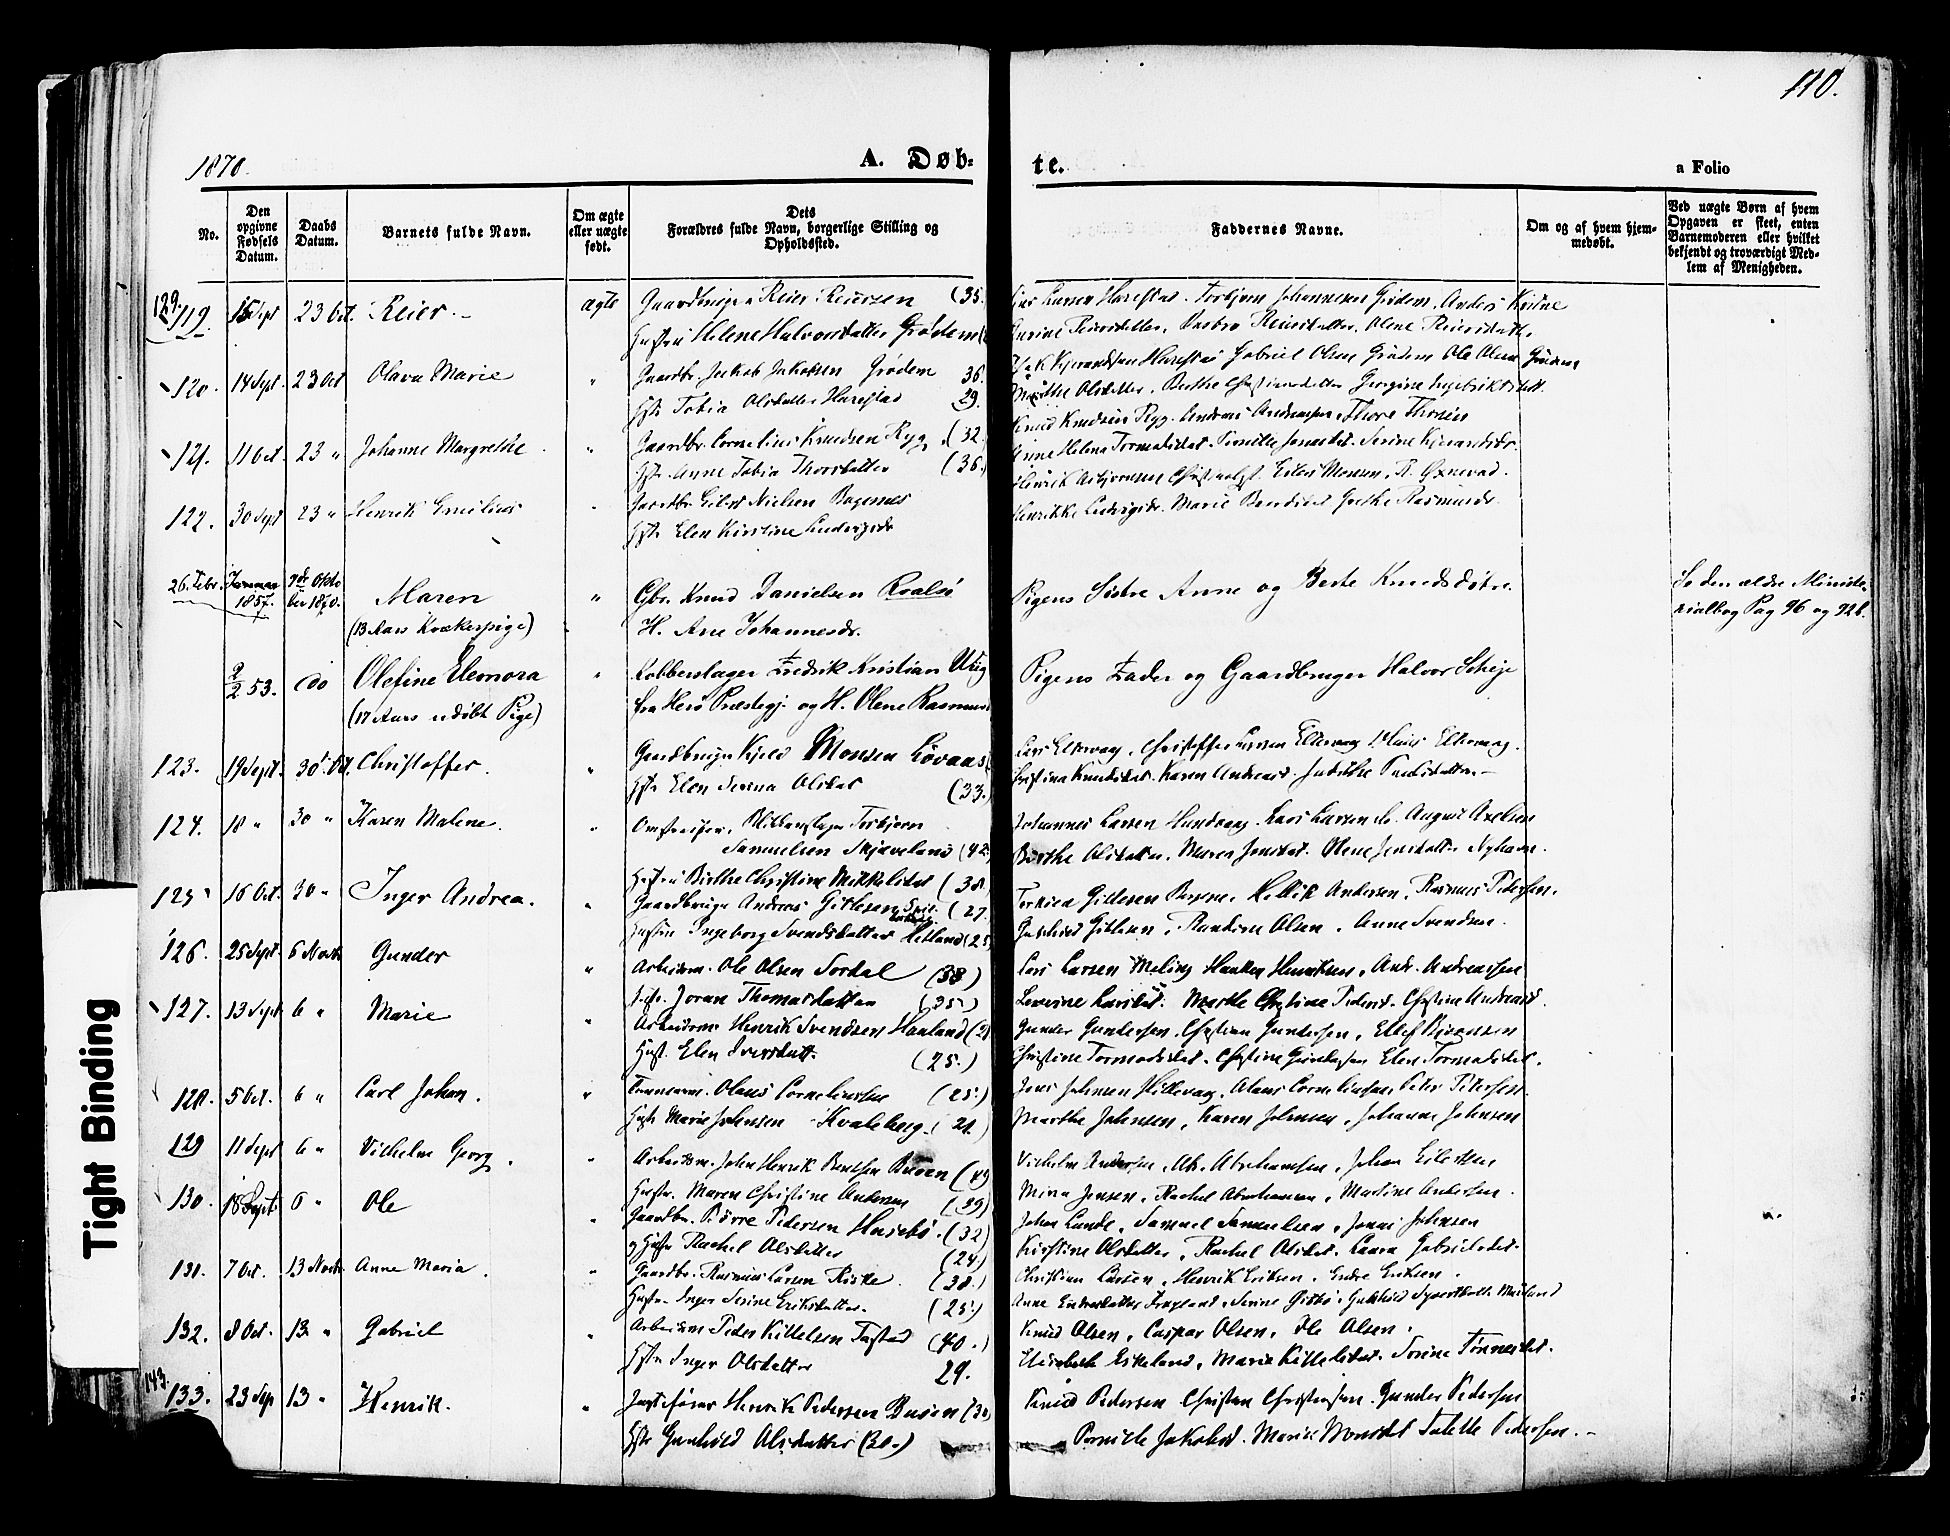 110.
1870.
A. Døb-
te.
a Folio
No.
Den opgivne Fødsels Datum.
Daabs Datum.
Barnets fulde Navn.
Om ægte eller uægte født.
Dets Forældres fulde Navn, borgerlige Stilling og Opholdssted.
Faddernes Navne.
Om og af hvem hjemmedøbt.
Ved uægte Børn af hvem Opgaven er skeet, enten Barnemoderen eller hvilket bekjendt og troværdigt Medlem af Menigheden.
129/119. 15 Sept 23 Oct. Reier.- ægte Gaardbruger Reier Reiersen (35.
Hustru Helene Halvorsdatter Grødem
Lars Larsen Harestad. Torbjørn Johannesen Grødem. Anders
Reiersdatter, Olene Reiersdatter
120. 14 Sept. 23 Oct Olava Marie " Gaardbr. Jakob Jakobsen Grødem 36.
Hstr Tobia Olsdatter Harestad 29.
Harestad Gabriel Olsen Grødem Ole Olsen Grødem
Marthe Olsdatter, Berthe Christiansdatter Georgine
121. 11 Oct. 23 " Johanne Margrethe. " Gaardbr. Cornelius Knudsen Ryg (32.
Hstr. Anne Tobia Thorsdatter (36.)
Knud Knudsen Ryg. Andreas Andreassen, Thore Thorsen
Anne Helena Tormodsdat. Pernille Jonsdat. Serine
122. 30 Sept 23 " Henrik Emilius " Gaardbr Eilert Nielsen Bogenæs
Hstr Elen Kirstine Ludvigsdr
Henrikke Ludvigsdr. Marie Grethe Rasmusdr.
26. Febr. Januar 1857. 9de Okto ber 1870. Maren " Gbr. Knud Danielsen Kvalsø
(13 Aars Kvækerpige) H. Ane Johannesdr.
Pigens Søstre Anne og Berte Knudsdøtre.
Se den ældre Ministe-
rialbog Pag 96 og 928.
9/2 53. do Olefine Eleonora " Kobberslager Fredrik Kristian
(17 Aars udøbt Pige) fra Herø Præstegj. og H. Olene Rasmus
Pigens Fader og Gaardbruger Halvor Scheje
123. 19 Sept. 30 Oct. Christoffer. " Gaardbruger Kjeld Monsen Løvaas
Hstr Elen Serina Olsdat (33.)
Lars Eltervag, Christoffer Larsen Eltervag Eltervaag.
Christina Knudsdat. Karen Andreasd.
124. 18 " 30 " Karen Malene. " Torbjørn
Samuelsen Skjæveland (42)
Hustru Birthe Christine Mikkelsdat (38.
Johannes Larsen Hundvaag, Lars Larsen do. August Axelsen
Berthe Olsdatter, Maren Jonsdat. Olene Jensdatter Nyhavn.
125 16 Oct. 30 " Inger Andrea. " Gaardbruger Andreas Gitlesen (27.
Hustru Ingeborg Svendsdatter Hetland (25)
Gitlesen Andersen, Rasmus Pedersen.
Gunhild Gitlesen, Olsen, Anne Svendsen.
126. 25 Sept. 6 Novb. Gunder " Arbeidsm. Ole Olsen Sordal (38)
Hstr. Joran Thomasdatter (35)
Lars Larsen Meling Haaken Henriksen, Andr. Andreassen
Severine Larsdat. Marthe Christine Pedersd. Christine Andreasd.
127. 13 Sept 6 " Marie " Arbeidsm. Henrik Svendsen Haaland
Hust. Elen Iversdatt. (25.)
Gunder Gundersen, Christian Gundersen,
Christine Tormodsdat. Christine Gundersen Elen Tormodsdat.
128. 5 Oct. 6 " Carl Johan. " Tømmerm. Olaus Corneliussen (25.)
Hust Marie Johnsen Kvaleberg. (21.)
Jens Johnsen Hillevaag, Olaus Corneliussen, Peter Petersen.
Marthe Johnsen, Karen Johnsen, Johanne Johnsen
129 11 Sept 6 " Vilhelm Georg. " Arbeidsm. John Henrik Bentsen Buøen (49)
Hustr. Maren Christine Andersen (39)
Vilhelm Andersen, Ab. Abrahamsen, Johan Eilertsen
Mina Jensen, Rachel Abrahamsen, Martine Andersen.
130. 18 Sept. 6 " Ole " Gaardbr. Børre Pedersen Husebø. (32)
og Hustr Rachel Olsdatter (24)
Johan Lunde, Samuel Samuelsen, Jonas Johnsen
Kirstine Olsdatter, Rachel Olsdat. Laura Gabrielsdat.
131. 7 Oct. 13 Novb. Anne Maria. " Gaardbr. Rasmus Larsen Riske. (38.)
Hustr. Inger Serine Eriksdatter. (25.)
Christian Larsen, Henrik Eriksen. Endre Eriksen.
Anne Endresdatter Frøyland, Serine Gisbø, Gunhild
132. 8 Oct. 13 " Gabriel " Arbeidsm Peder Kittelsen Tastad (40.)
Hstr Inger Olsdatter 29.
Knud Olsen, Caspar Olsen, Ole Olsen.
Elisabeth Eikeland, Marie Kittelsdat. Serine Tønnesdat.
143. 133. 23 Sep 13 " Henrik. " Henrik Pedersen Buøen (30)
Hstr Gunhild Olsdatter (30.)
Knud Pedersen Christian Christensen. Gunder Pedersen
Pernille Jakobsd. Marie Monsdat Pedersen.
Tight Binding